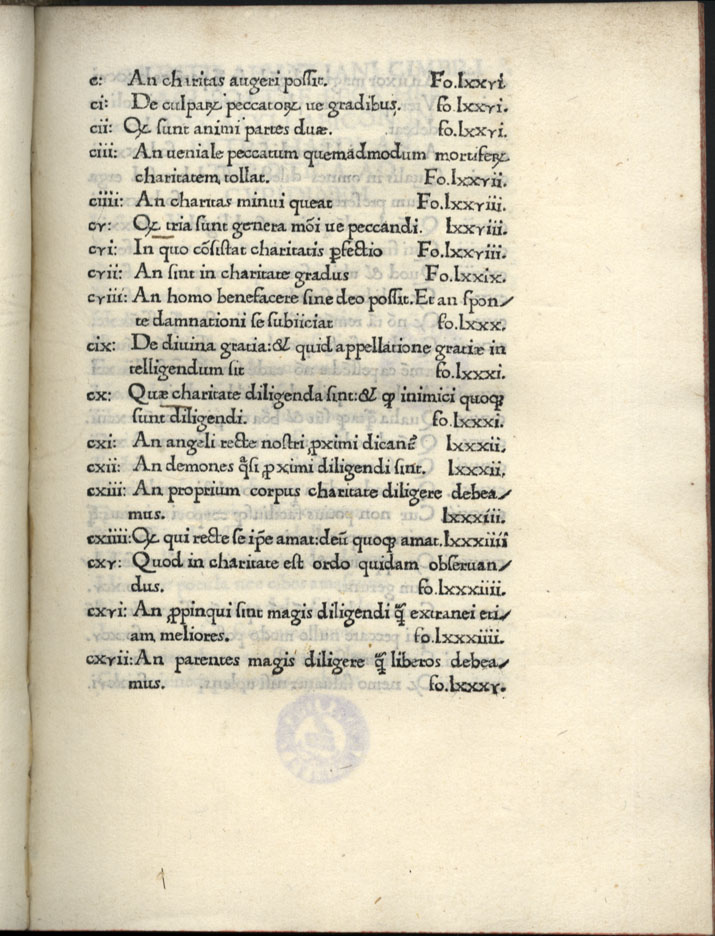 c: An charitas augeri possit. Fo.lxxvi
ci: De culpaꝝ peccatoꝝ ue gradibus. fo.lxxvi.
cii: Qꝫ sunt animi partes duæ. fo.lxxvi.
ciii: An ueniale peccatum quemadmodum mortiferꝫ
charitatem tollat. Fo.lxxvii.
ciiii: An charitas minui queat Fo.lxxviii.
cv: Qꝫ tria sunt genera mōi ue peccandi. lxxviii.
cvi: In quo cōsistat charitatis ꝑfectio Fo.lxxviii.
cvii: An sint in charitate gradus Fo.lxxix.
cviii: An homo benefacere sine deo possit. Et an spon/
te damnationi se subiiciat fo.lxxx.
cix: De diuina gratia: & quid appellatione gratiæ in
telligendum sit fo.lxxxi.
cx: Quæ charitate diligenda sint: & ꝙ inimici quoqꝫ
sunt diligendi. fo.lxxxi.
cxi: An angeli recte nostri ꝓximi dicant᷑ lxxxii.
cxii: An demones q̄si ꝓximi diligendi sint. lxxxii.
cxiii: An proprium corpus charitate diligere debea/
mus. lxxxiii.
cxiiii: Qꝫ qui recte se ip̄e amat: deū quoqꝫ amat. lxxxiiii
cxv: Quod in charitate est ordo quidam obseruan/
dus. fo.lxxxiiii.
cxvi: An ꝓpinqui sint magis diligendi q̄ꝫ extranei eti/
am meliores. fo.lxxxiiii.
cxvii: An parentes magis diligere q̄ꝫ liberos debea/
mus. fo.lxxxv.